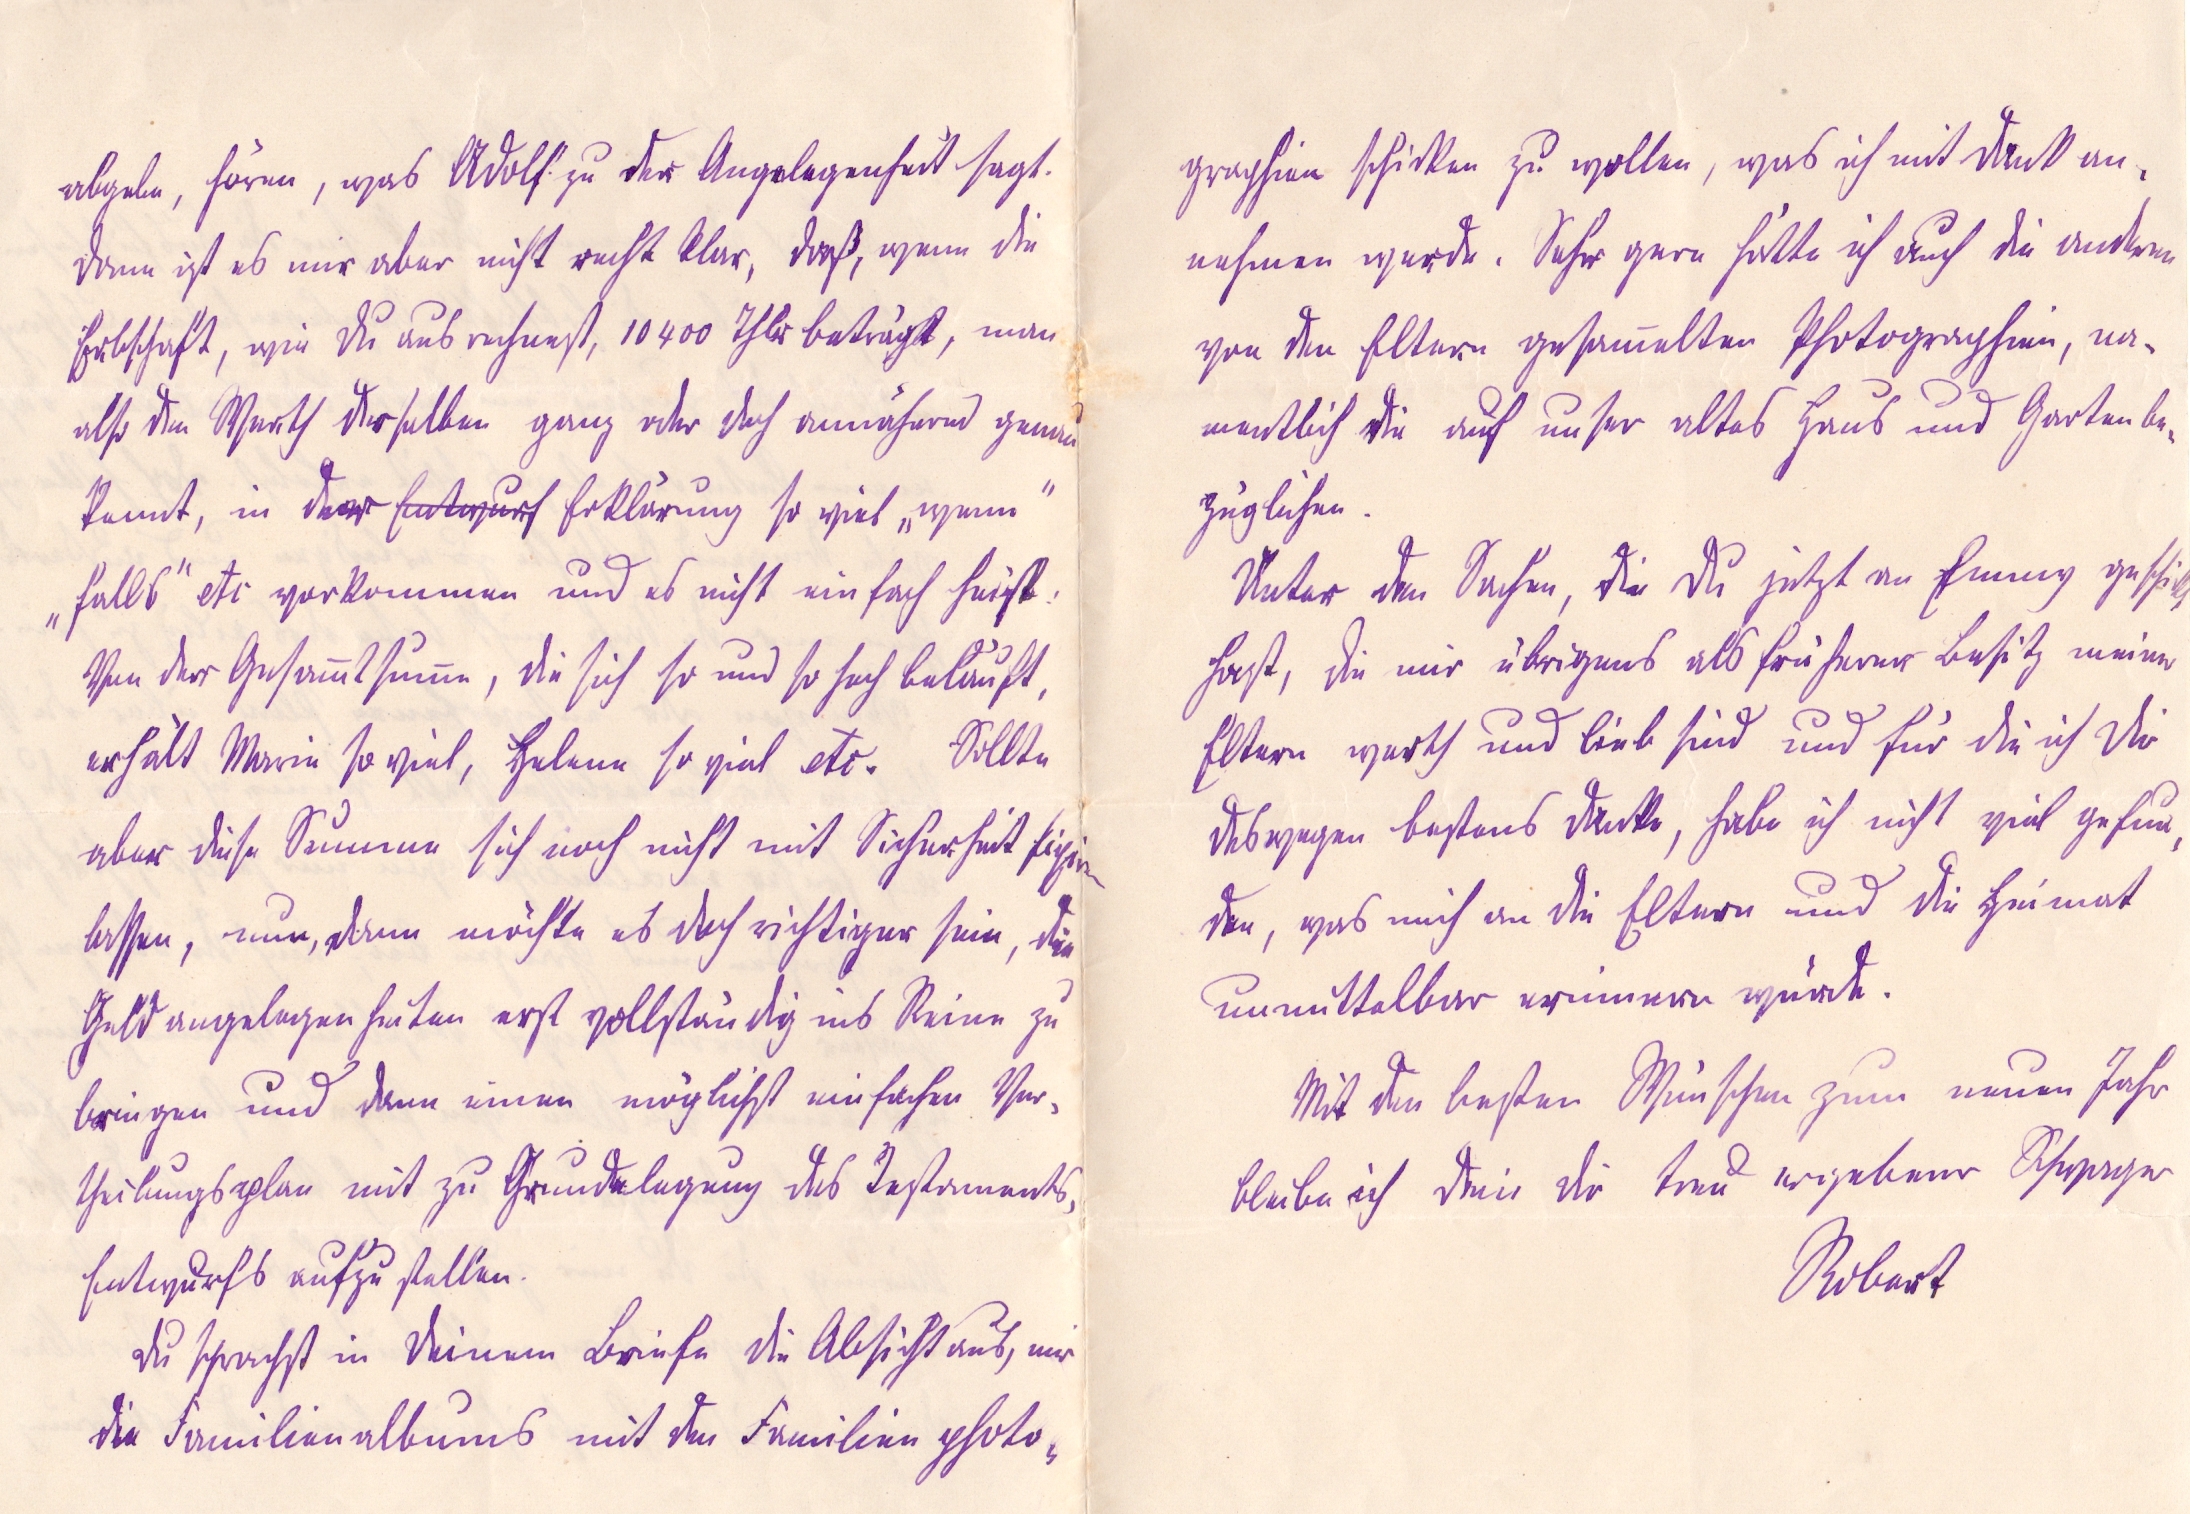 abgebe, hören, was Adolf zu der Angelegenheit sagt.
Dann ist es mir aber nicht recht klar, daß, wenn die
Erbschaft, wie Du ausrechnest, 10400 Thlr beträgt, man
also den Werth derselben ganz oder doch annähernd genau
kennt, in der Entwurf Erklärung so viel „wenn"
„falls" etc vorkommen und es nicht einfach heißt:
Von der Gesam̅tsum̅e, die sich so und so hoch beläuft,
erhält Marie so viel, Helene so viel etc. Sollte
aber diese Summe sich noch nicht mit Sicherheit fixiren
lassen, nun, dann möchte es doch richtiger sein, die
Geldangelegenheiten erst vollständig ins Reine zu
bringen und dann einen möglichst einfachen Ver-
theilungsplan mit zu Grundelegung des Testaments-
Entwurfs aufzustellen.
Du sprachst in Deinem Briefe die Absicht aus, mir
die Familienalbums mit den Familienphoto-
graphien schicken zu wollen, was ich mit Dank an-
nehmen werde. Sehr gern hätte ich auch die anderen
von den Eltern gesam̅elten Photographien, na-
mentlich die auf unser altes Haus und Garten be-
züglichen.
Unter den Sachen, die Du jetzt an Emmy geschickt
hast, die mir übrigens als früherer Besitz meiner
Eltern werth und lieb sind und für die ich Dir
deswegen bestens danke, habe ich nicht viel gefun-
den, was mich an die Eltern und die Heimat
unmittelbar erinnern würde.
Mit den besten Wünschen zum neuen Jahr
bleibe ich Dein Dir treu ergebener Schwager
Robert